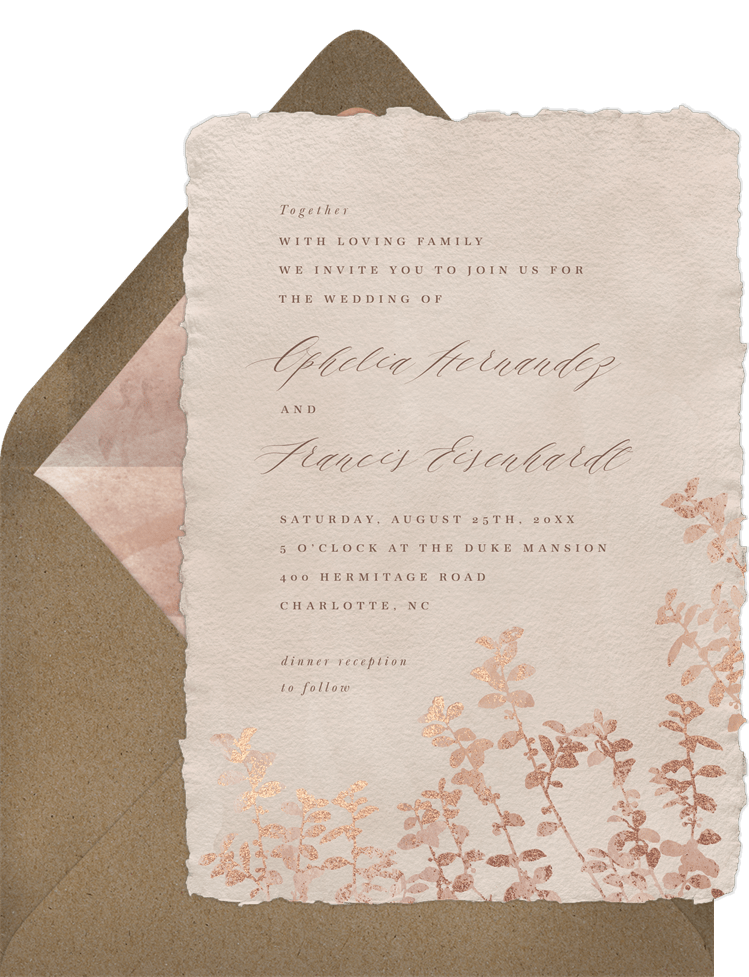 Together
WITH LOVING FAMILY
WE INVITE YOU TO JOIN US FOR
THE WEDDING OF
Ophelia Hernandez
AND
Francis Eisenhardt
SATURDAY, AUGUST 25TH, 20XX
5 O'CLOCK AT THE DUKE MANSION
400 HERMITAGE ROAD
CHARLOTTE, NC
dinner reception
to follow